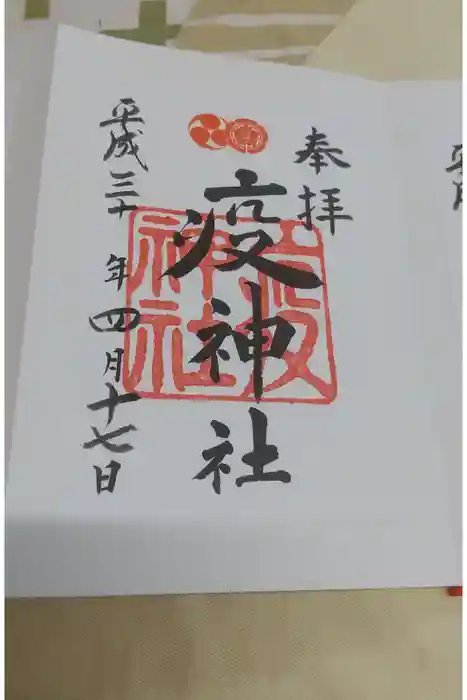 奉拝
疫神社
平成三十年四月十七日
神社